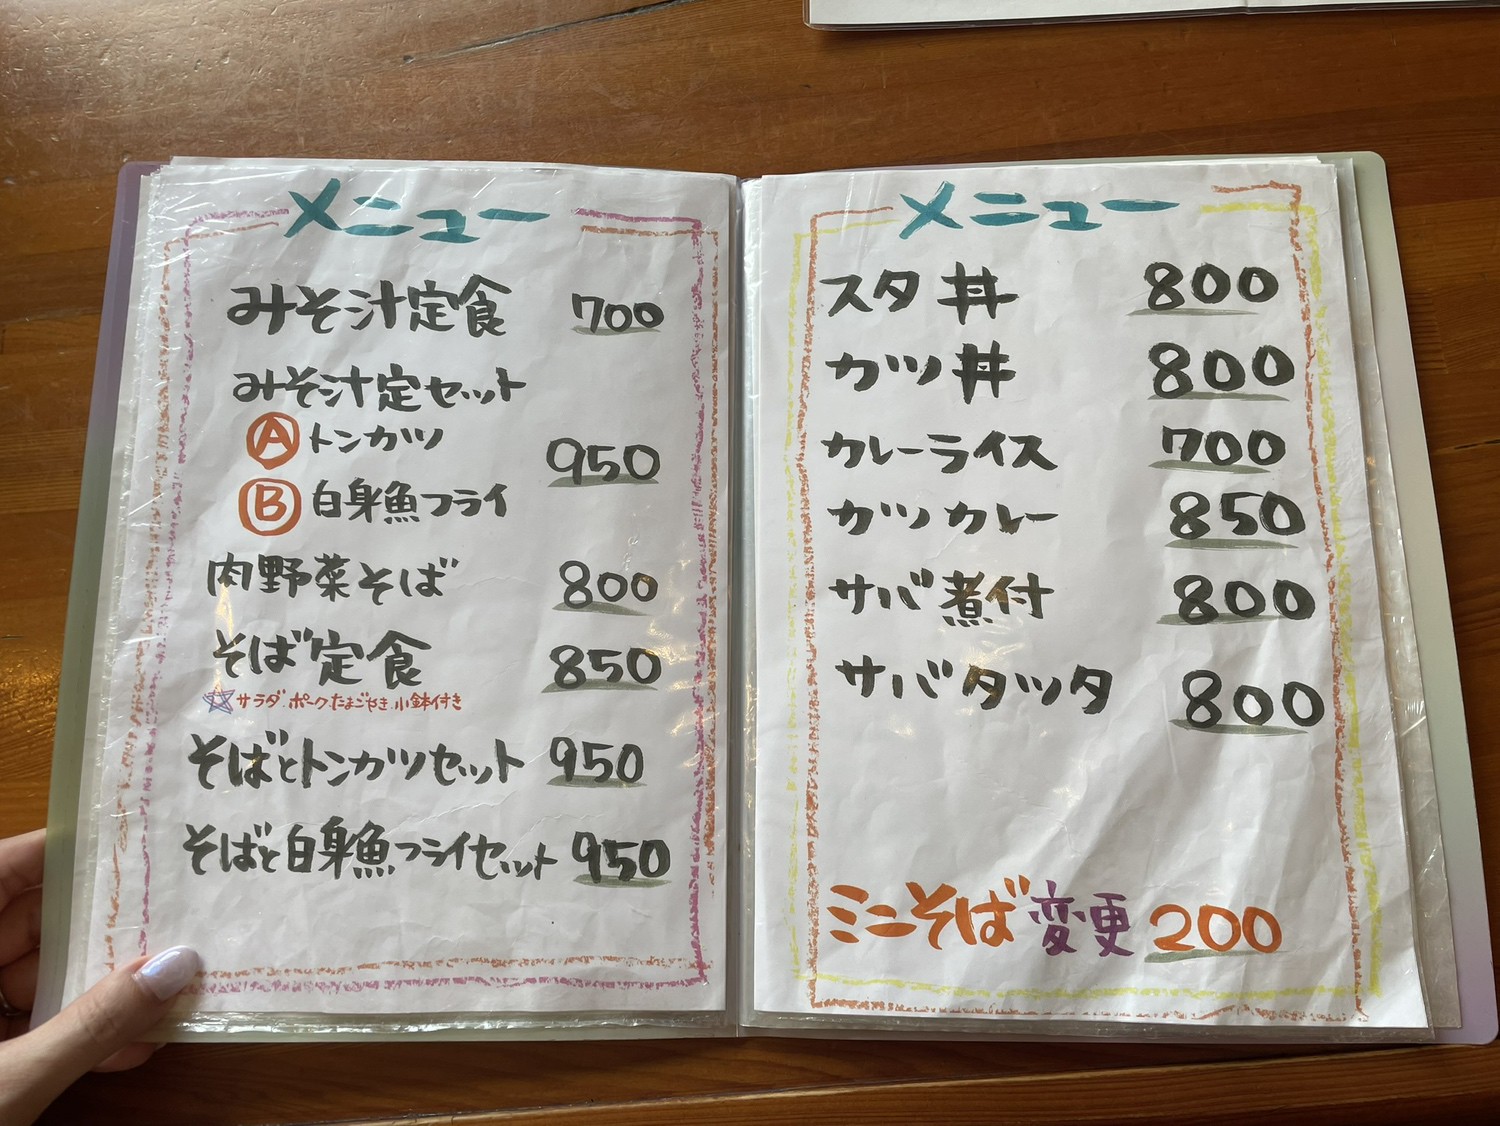 メニュー
みそ汁定食 700
みそ汁定セット
Ⓐ トンカツ
950
Ⓑ 白身魚フライ
肉野菜そば 800
そば定食 850
☆サラダ.ポーク.たまごやき.小鉢付き
そばとトンカツセット 950
そばと白身魚フライセット 950
メニュー
スタ丼 800
カツ丼 800
カレーライス 700
カツカレー 850
サバ煮付 800
サバタツタ 800
ミニそば変更 200